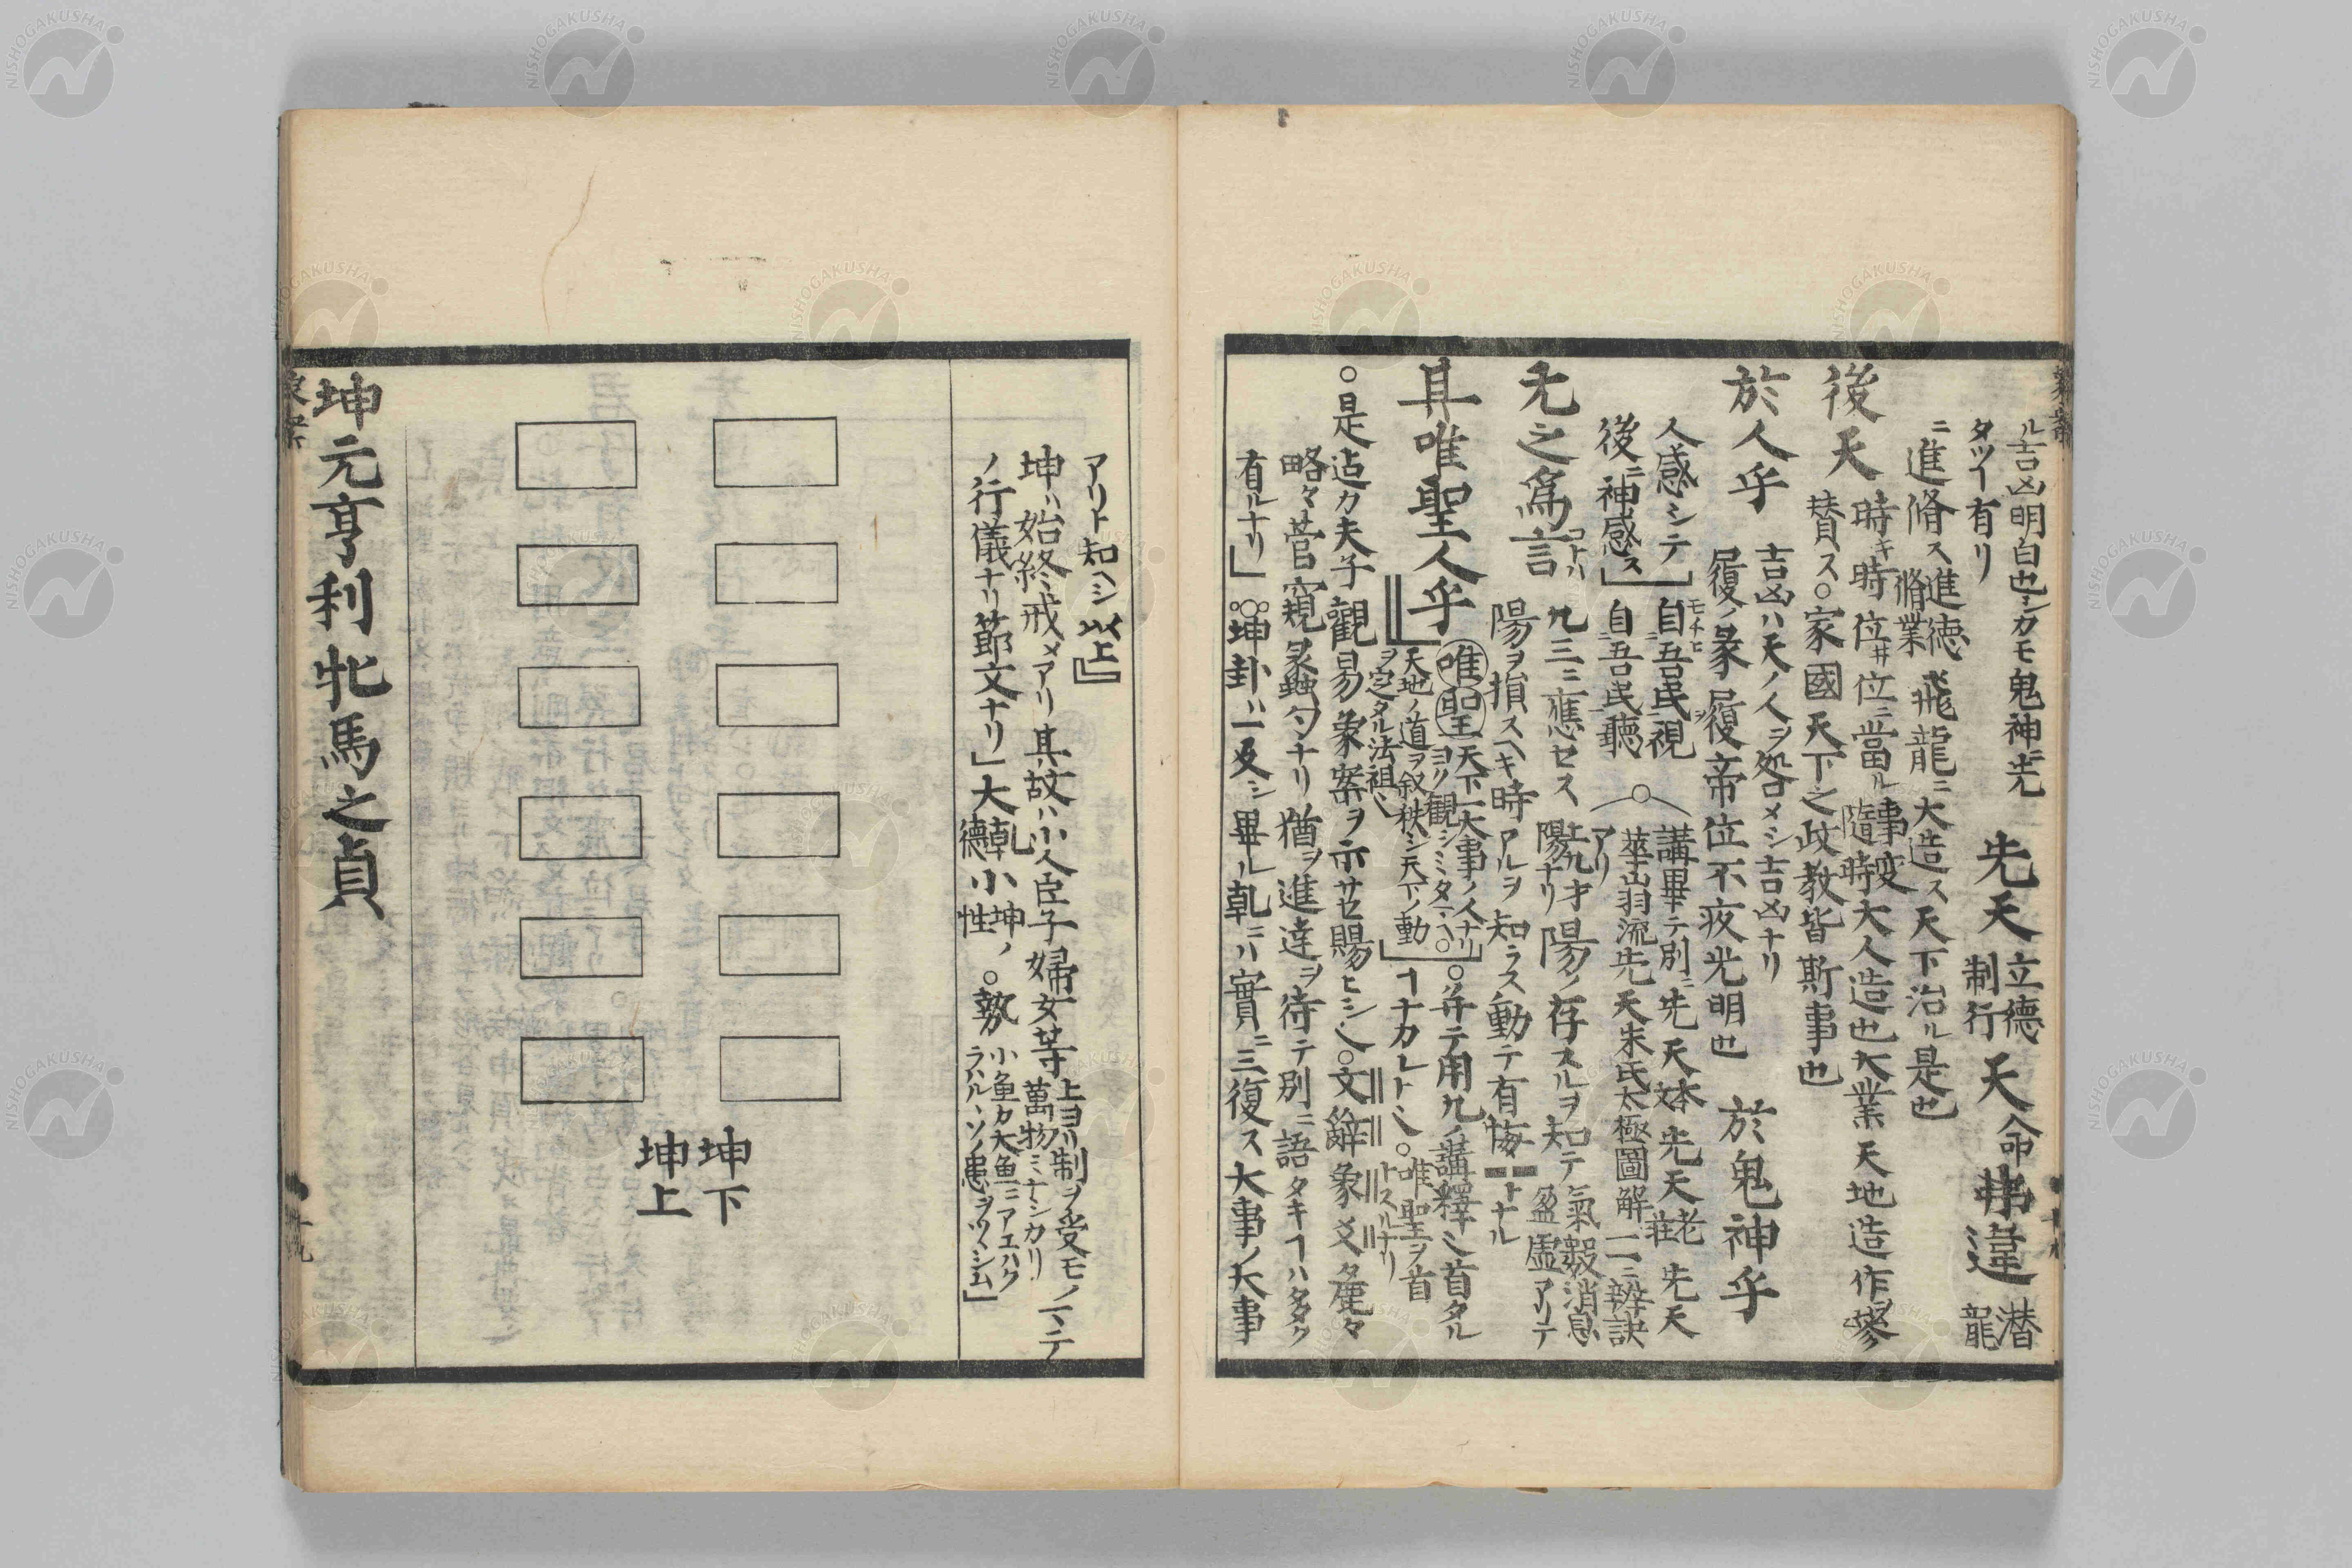 ル吉凶明白也シカモ鬼神ニ先
タツヿ有リ
先天
立德
制行
天命弗違
潜
龍
ニ進脩ス
進徳
脩業
飛龍ニ大造ス天下治ル是也
後天
時キ時位ヰ位ニ當ル
事変
隨時
大人造也大業天地造作
賛ス○家國天下之政教皆斯事也
於人乎
吉凶ハ天ノ人ヲ処ロメシ吉凶ナリ
履ノ彖履帝位不疚光明也
於鬼神乎
人感シテ
後ニ神感ス
自吾民視
自吾民聽
○
講畢テ別ニ先天
本
文
先天
老
莊
先天
アリ
華山羽流先天朱氏太極圖解一ニ辨訣
无之爲言
九三ニ應セス
陽ヲ損スヘキ時アルヲ知ラス動テ有悔トナル
上九才
陽ナリ
陽ノ存スルヲ知テ氣毅消息
盈虛アリテ
其唯聖人乎
唯聖
天下大事ノ人ナリ
ヨク觀シミタマヘ○
天地ノ道ヲ叙秩シ天下ノ動
ヲ定タル法祖ヘ
○弁テ用九ノ講釋ミ首タル
ヿナカレトミ○唯聖ヲ首
トスルナリ
○是迠カ夫子觀易象案ヲ示サセ賜ヒシヘ○文辭象爻タ麁々
略々菅窺蠡勺ナリ猶ヲ進達ヲ待テ別ニ語タキヿハタタク
有ルナリ」○坤卦ハ一反シ畢ル乾ニハ實ニ三復ス大事ノ大事
アリト知ヘシ以上』
坤ハ始終ニ戒メアリ其故ハ小人臣子婦女等
上ヨリ制ヲ受モノ
萬物ミナシカリ
一ニテ
ノ行儀ナリ節文ナリ」大
乾
德
小
坤ノ
性
○勢
小魚カ大魚ニアエハク
ラハルヽソノ患ヲツヽシム」
坤下
坤上
坤元亨利牝馬之貞